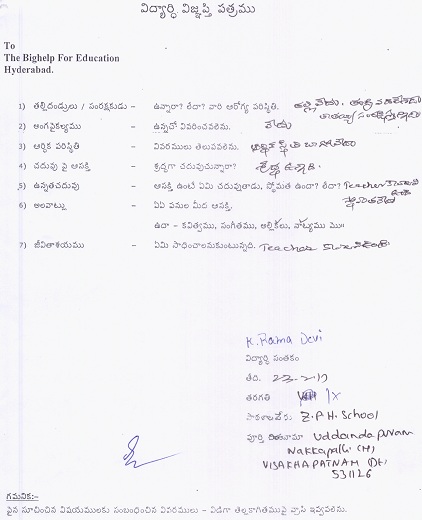 విద్యార్ధి విజ్ఞప్తి పత్రము
To
The Bighelp For Education
Hyderabad.
1) తల్లిదండ్రులు / సంరక్షకుడు - ఉన్నారా? లేదా? వారి ఆరోగ్య పరిస్థితి.
2) అంగవైకల్యము - ఉన్నచో వివరించవలెను. లేదు
3) ఆర్ధిక పరిస్థితి - వివరములు తెలుపవలెను.
4) చదువు పై ఆసక్తి - శ్రద్ధగా చదువుచున్నారా? శ్రద్ధ ఉన్నది.
5) ఉన్నతచదువు - ఆసక్తి ఉంటే ఏమి చదువుతాడు, స్తోమత ఉందా? లేదా? Teacher
6) అలవాట్లు - ఏఏ పనుల మీద ఆసక్తి.
ఉదా - కవిత్వము, సంగీతము, అల్లికలు, నాట్యము మొ॥
7) జీవితాశయము - ఏమి సాధించాలనుకుంటున్నది. Teacher
K. Rama Devi
విద్యార్ధి సంతకం
తేది. 22-2-17
తరగతి IX
పాఠశాల పేరు Z.P.H. School
పూర్తి చిరునామా Uddandapuram
Nakkapalli (M)
VISAKHAPATNAM (Dt)
531126
గమనిక:-
పైన సూచించిన విషయములకు సంబంధించిన వివరములు - విడిగా తెల్లకాగితముపై వ్రాసి ఇవ్వవలెను.